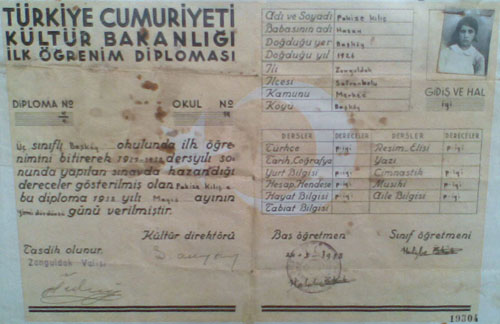 TÜRKİYE CUMURİYETİ
KÜLTÜR BAKANLIĞI
İLK ÖĞRENİM DİPLOMASI
DİPLOMA No
OKUL No
Üç sınıflı Başköy okulunda ilk öğre
nimini bitirerek dersyılı so-
nunda yapılan sınavda kazandığı
dereceler gösterilmiş olan Pakize Kılıç a
bu diploma yılı Mayıs ayının
günü verilmiştir.
Kültür direktörü
Tasdik olunur.
Zonguldak Valisi
Adı ve Soyadı Pakize Kılıç
Babasının adı Hasan
Doğduğu yer Başköy
Doğduğu yıl
İli Zonguldak
İlcesi Safranbolu
Kamunu Merkez
Koyu Başköy
GİDİŞ VE HAL
iyi
DERSLER DERECELER DERSLER DERECELER
Türkçe p.iyi Resim-Elişi p.iyi
Tarih, Coğrafya p.iyi Yazı p.iyi
Yurt Bilgisi p.iyi Cimnastik p.iyi
Hesap, Hendese p.iyi Musiki p.iyi
Hayat Bilgisi p.iyi Aile Bilgisi p.iyi
Tabiat Bilgisi
Baş öğretmen Sınıf öğretmeni
19304